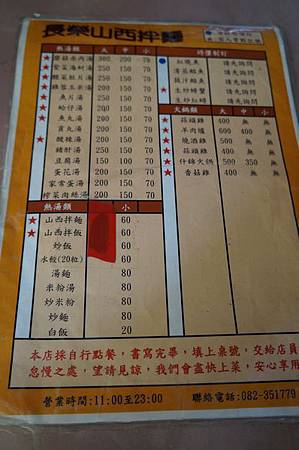 長樂山西拌麵
熱湯類 大 中 小
蘑菇赤肉湯 300 200 70
紫菜海鮮湯 200 150 70
酸菜肚片湯 200 150 70
魚湯 200 150 70
蛤仔湯 200 150 70
魚丸湯 200 150 70
貢丸湯 200 150 70
豬腸湯 200 150 70
豬肝湯 200 150 70
豆腐湯 200 150 70
蛋花湯 200 150 70
家常蛋湯 200 150 70
榨菜肉絲湯 200 150 70
熱湯類 小
山西拌麵 60
山西拌飯 60
炒飯 60
水餃(20粒) 60
湯麵 80
米粉湯 80
炒米粉 80
炒麵 80
白飯 20
時價制訂
紅燒魚 請先詢問
清蒸鱸魚 請先詢問
豉汁鱸魚 請先詢問
生炒螃蟹 請先詢問
生炒紅蟳 請先詢問
火鍋類 大 中 小
蒜頭雞 400 無 無
羊肉爐 500 400 無
燒酒雞 400 無 無
什錦火鍋 500 350 無
香菇雞 400 無 無
本店採自行點餐，書寫完畢，填上桌號，交給店員
怠慢之處，望請見諒，我們會盡快上菜，安心享用
營業時間:11:00至23:00 聯絡電話:082-351779